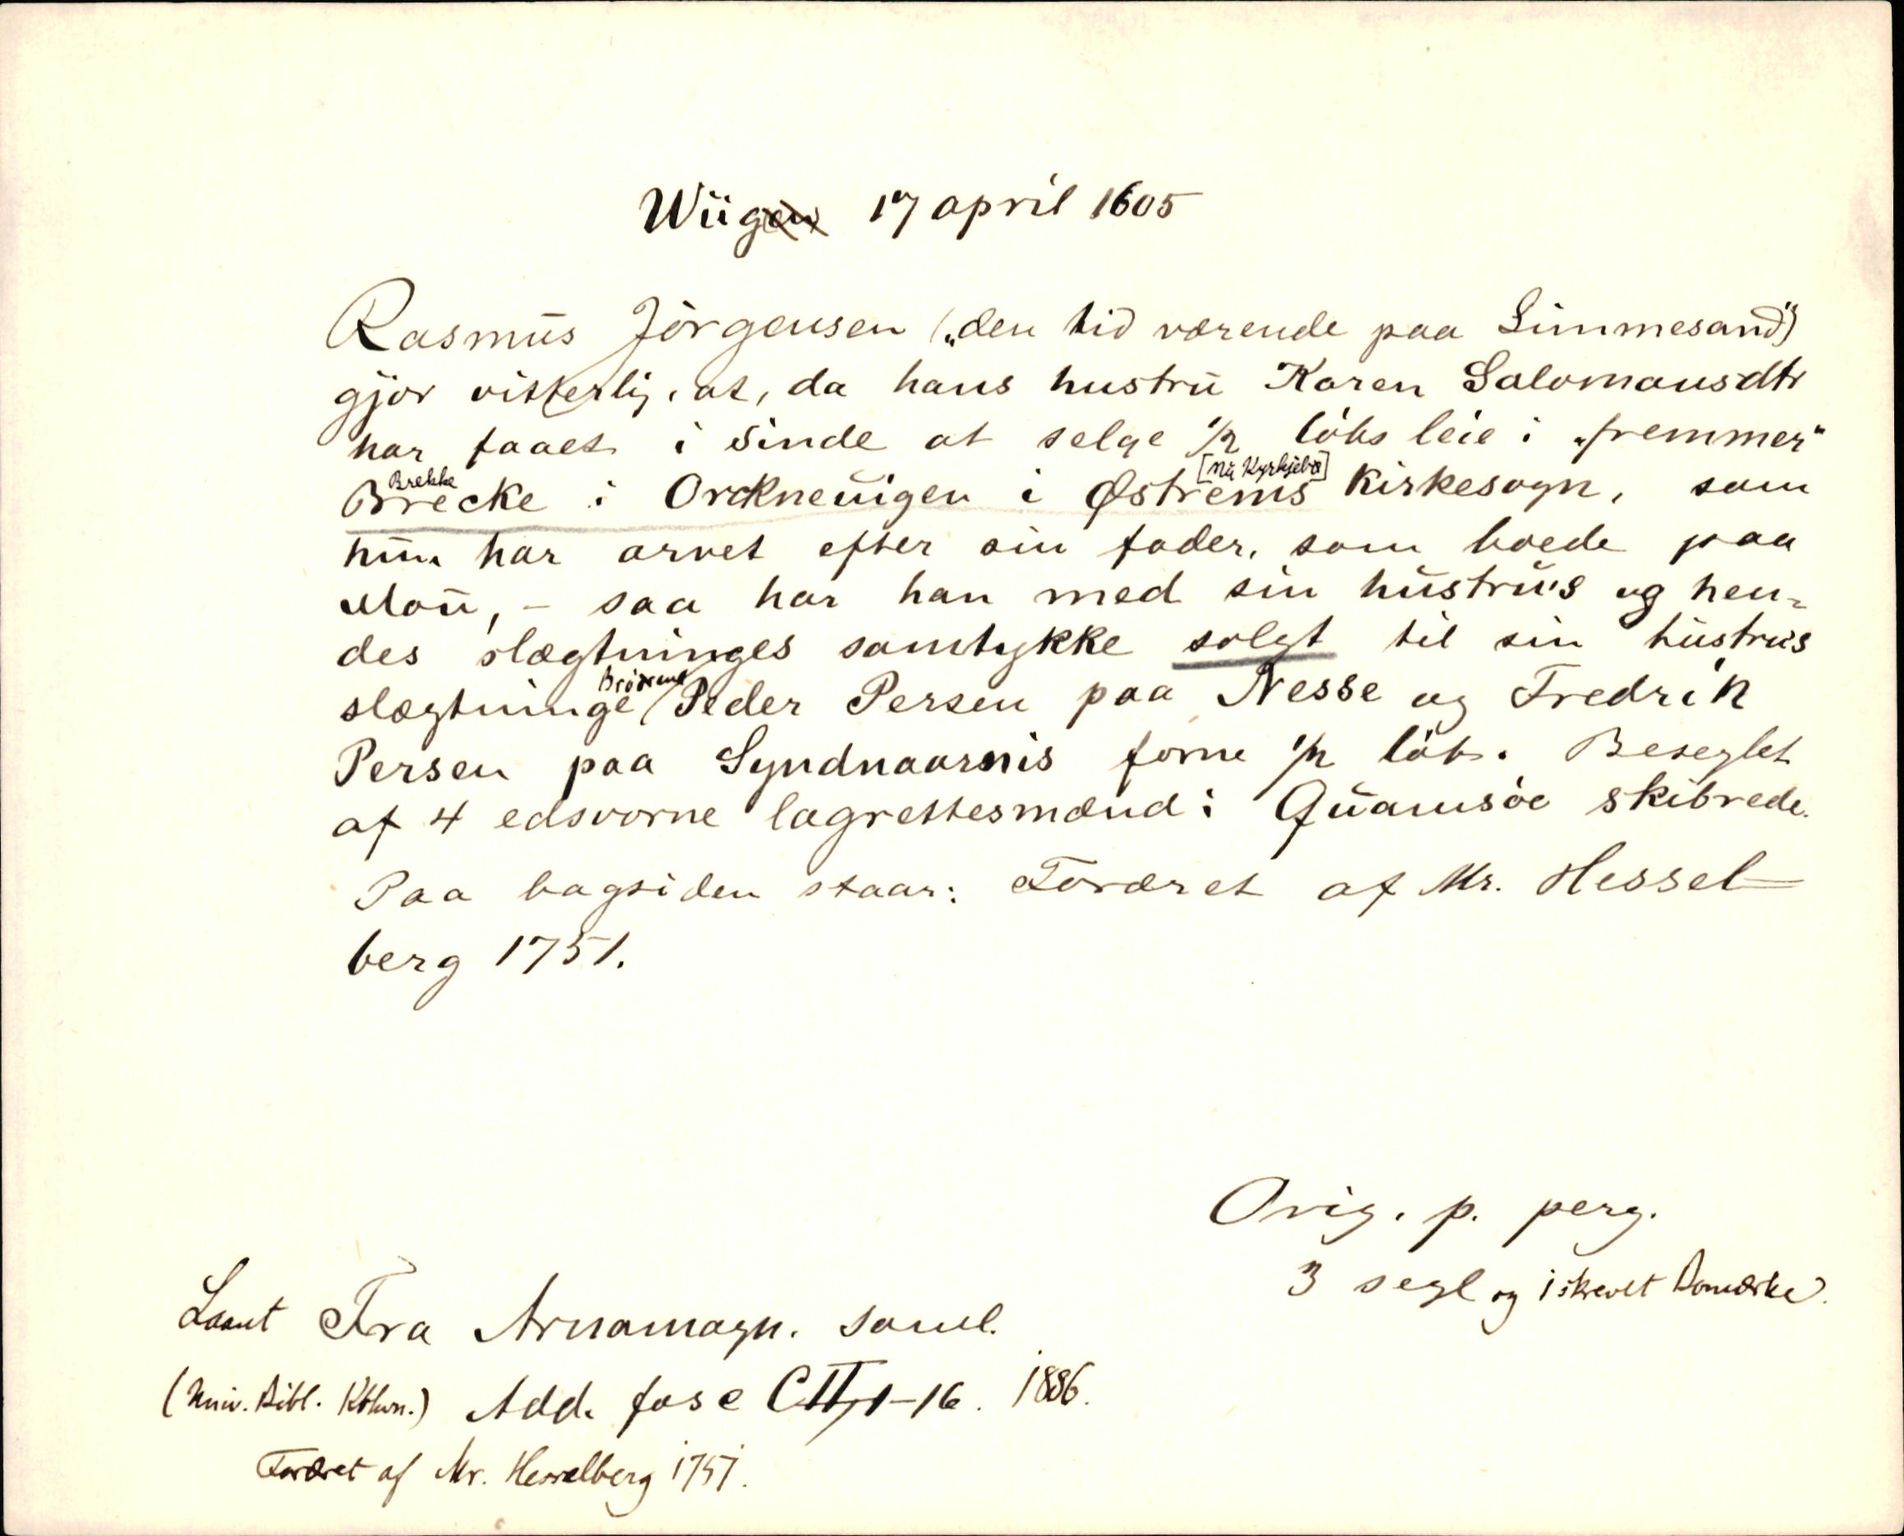 Wiig 17 april 1605
Rasmus Jörgensen („den tid værende paa Simmesand”)
gjör vitterlig, at, da hans hustru Karen Salomonsdtr
har faaet i sinde at selge 1/2 löbs leie i „fremmer“
Brekke [Nu Kyrkjebø]
Brecke i Orckneuigen i Østrems Kirkesogn, som
hun har arvet efter sin fader, som boede paa
Mou, - saa har han med sin hustru's og hen-
des slægtninges samtykke solgt til sin hustrus
Brödrene
slægtninge Peder Persen paa Nesse og Fredrik
Persen paa Syndnaarnis forne 1/2 löb. Beseglet
af 4 edsvorne lagrettesmænd i Quamsöe skibrede.
Paa bagsiden staar: Foræret af Mr. Hessel-
berg 1751.
Orig. p. perg.
3 segl og i skrevet Bomærke.
Laant Fra Arnamagn. saml.
(Univ. Bibl. Kbhvn.) Add. fasc CII, 1-16. 1886.
Foræret af Mr. Hesselberg 1751.